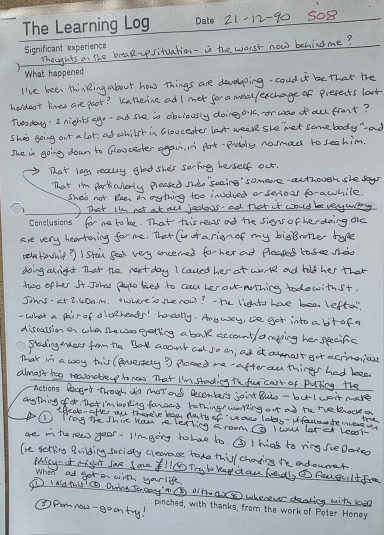 The Learning Log Date 21-12-90 508
Significant experience
Thoughts on the break-up situation - is the worst now behind me?
What happened
I've been thinking about how things are developing - could it be that the
hardest lines are past? Katherine and I met for a meal/exchange of presents last
Tuesday - 2 nights ago - and she is obviously doing o.k, or was it all front?
She's going out a lot, and whilst in Gloucester last week she "met somebody" - and
she is going down to Gloucester again, in part - probably normal to see him.
That I am really glad she's sorting herself out.
That I'm particularly pleased she's "seeing" someone - although she says
she's not keen on anything too involved or serious for a while.
That I'm not at all jealous - and that it would be very wrong
Conclusions for me to be. That this news and the signs of her doing o.k.
are very heartening for me. That (is it a sign of my big Brother type
relationship?) I still feel very concerned for her and pleased to see she's
doing alright. That the next day I called her at work and told her that
two of her St. Johns people tried to call her out - nothing to do with St.
Johns - at 2.40a.m. "where is she now?" - "the lights have been left on".
- what a pair of dickheads! honestly. Anyway, we got into a bit of a
discussion on who was getting a bank account/dropping her specific
standing orders from the Bank account and so on, and it almost got acrimonious.
That in a way this (perversely?) pleased me - after all things had been
almost too reasonable up to now. That I'm standing the full cost of putting the
Actions Peugeot through its MOT and December's joint Bills - but I won't make
anything of it. That I'm looking forward to things working out and the
① Ring the Shire Hall re letting a room ② I will at least
are in the new year - I'm going to have to. ③ I tried to ring Sue Davies
(re getting Building Society clearance to do this/changing the endowment
policy - it might save some £!! ④ Try to keep it all friendly ⑤
When and get on with your life.
① I did this! ② During January ③ ④ whenever dealing with
⑤ From now - go on try! ...pinched, with thanks, from the work of Peter Honey